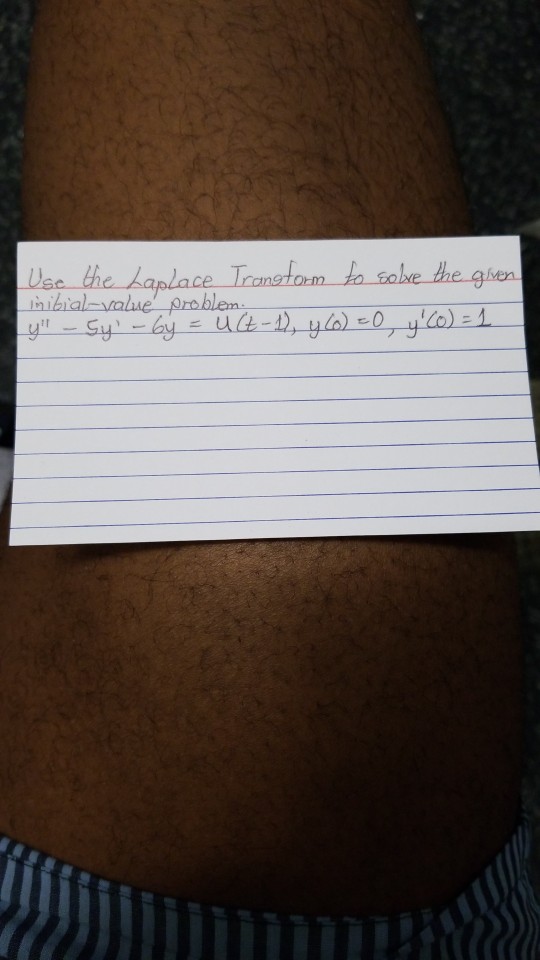 Use the Laplace Transform to solve the given
initial-value problem.
y'' - 5y' - 6y = U(t-1), y(0) = 0, y'(0) = 1